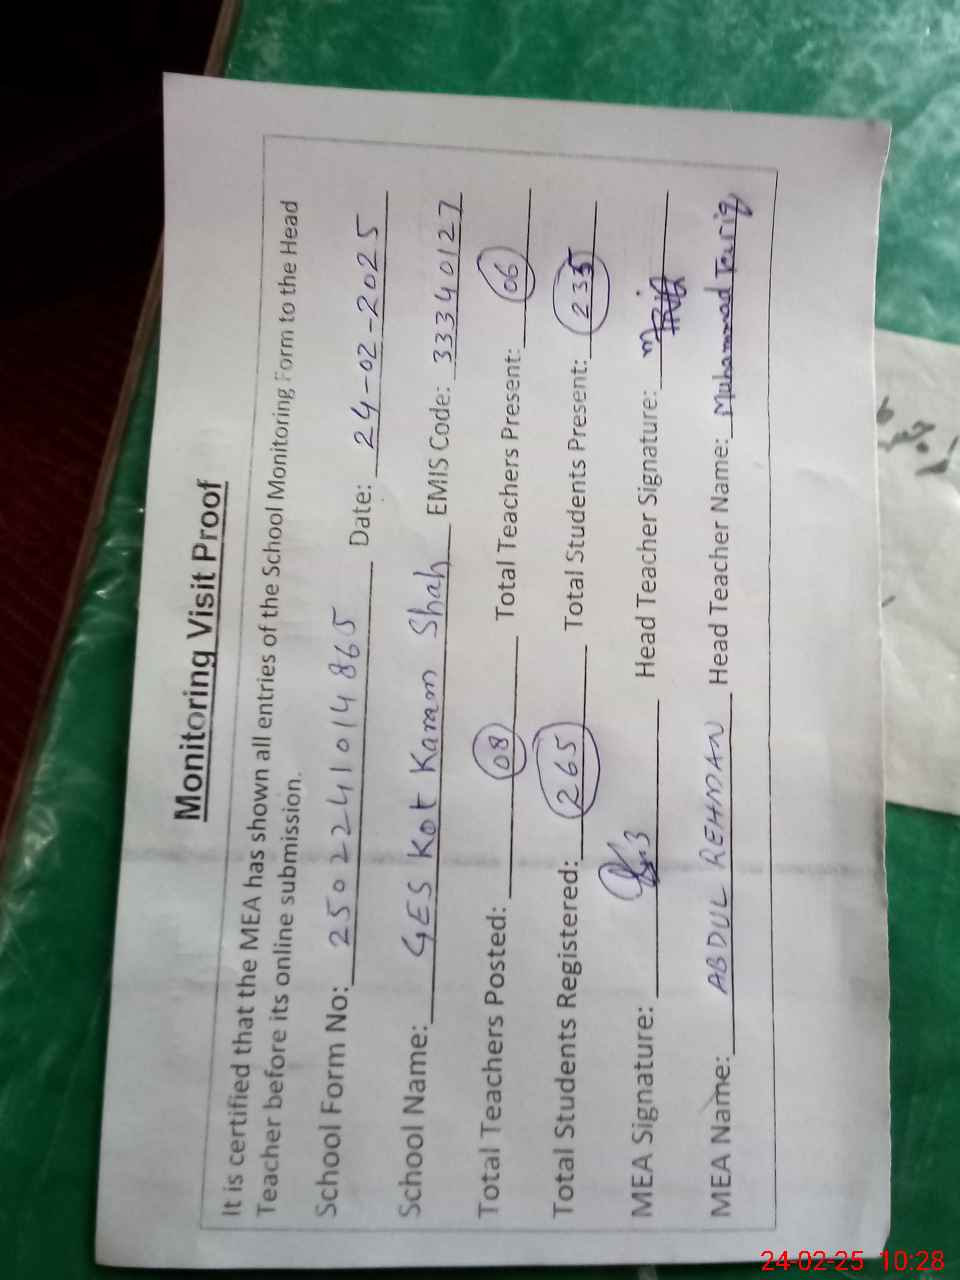 Monitoring Visit Proof
It is certified that the MEA has shown all entries of the School Monitoring Form to the Head
Teacher before its online submission.
School Form No: 25022241014865 Date: 24-02-2025
School Name: GES Kot Karam Shah EMIS Code: 33340127
Total Teachers Posted: 08 Total Teachers Present: 06
Total Students Registered: 265 Total Students Present: 235
MEA Signature: Head Teacher Signature:
MEA Name: ABDUL REHMAN Head Teacher Name: Muhammad Tariq
24-02-25 10:28